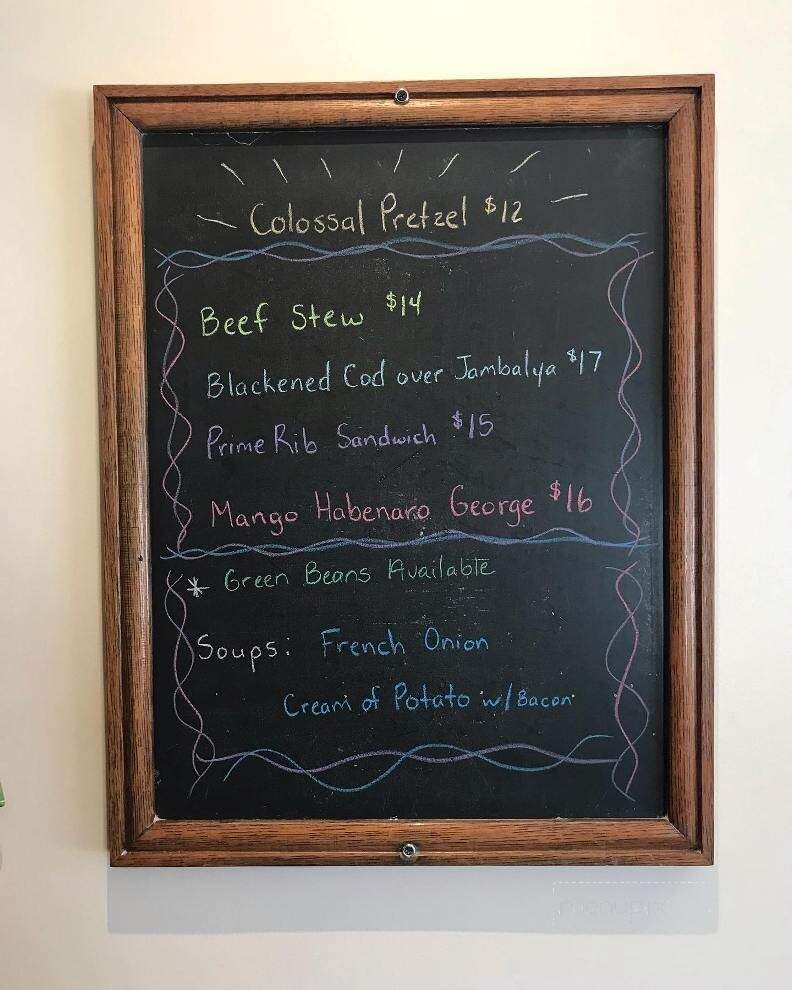 Colossal Pretzel $12
Beef Stew $14
Blackened Cod over Jambalya $17
Prime Rib Sandwich $15
Mango Habenaro George $16
* Green Beans Available
Soups: French Onion
Cream of Potato w/Bacon